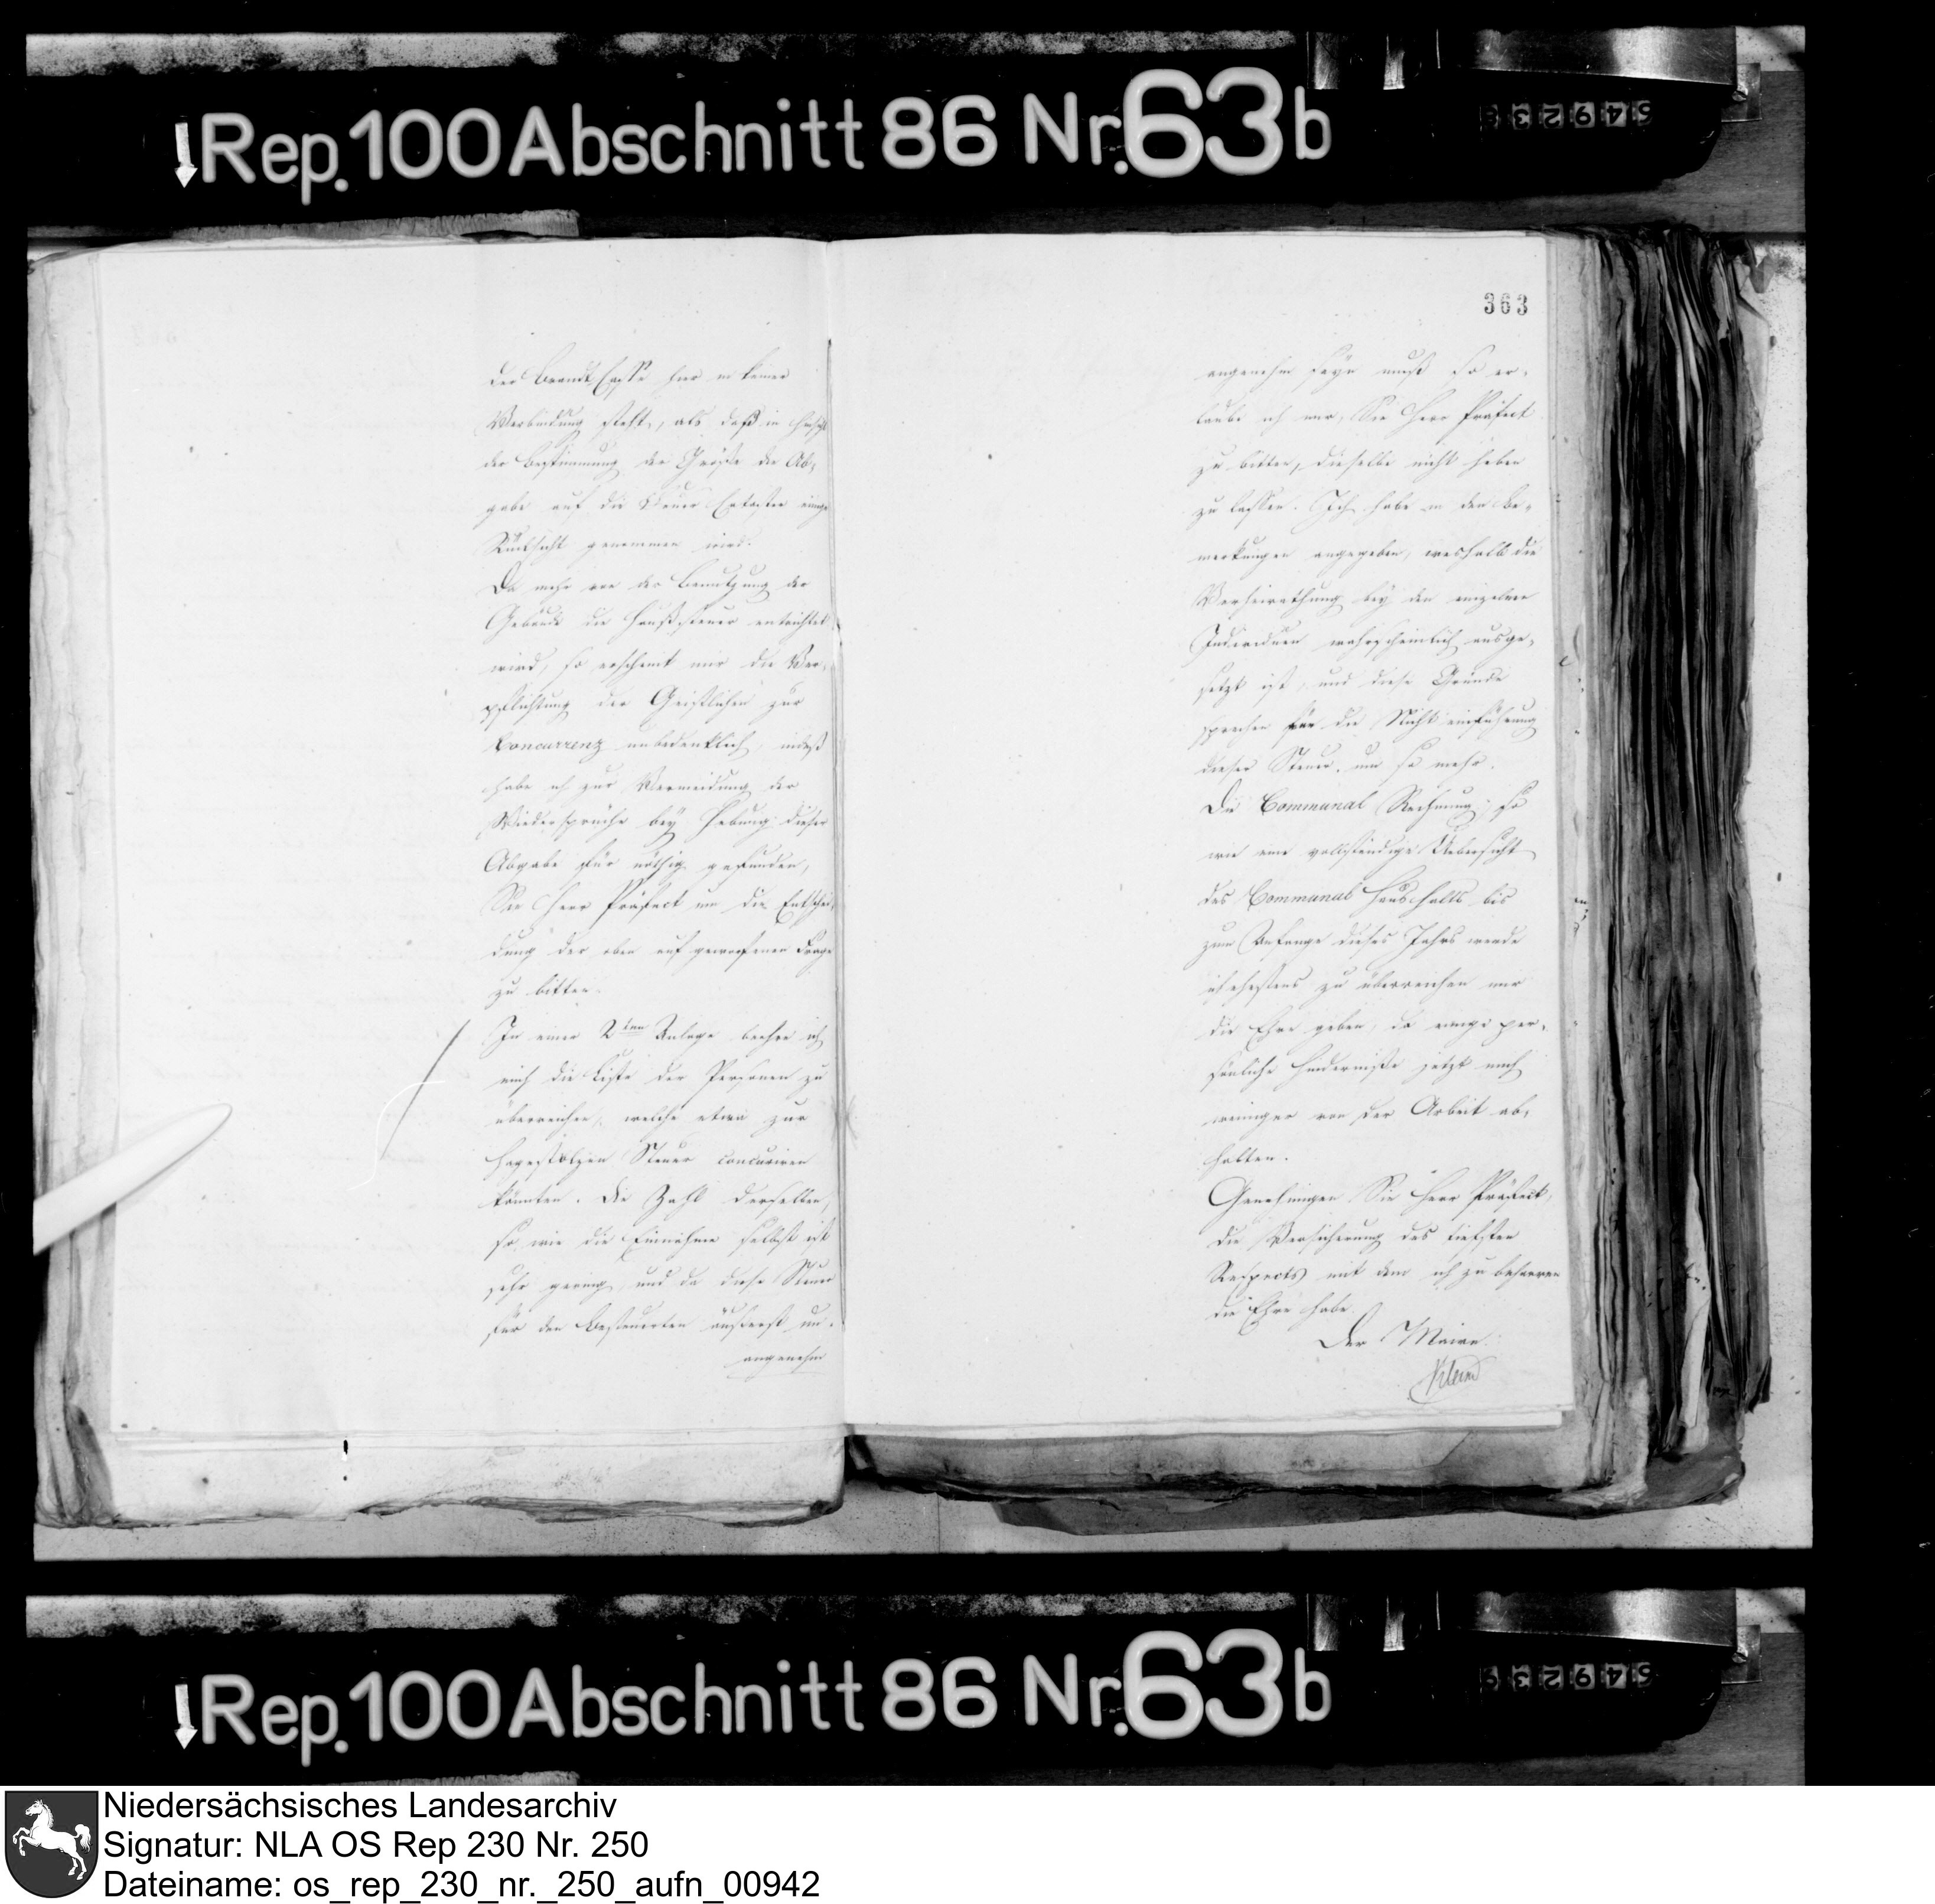 Rep. 100 Abschnitt 86 Nr. 63b
549233
363
der Brandt Casse hier in keiner
Verbindung steht, als daß in Hinsicht
der Bestimmung der Größe der Ab-
gabe auf die Steuer Cataster einige
Rücksicht genommen wird.
Da mehr von der Benutzung der
Gebäude die Haußsteuer entrichtet
wird, so erscheint mir die Ver-
pflichtung der Geistlichen zur
Concurrenz unbedenklich, indeß
habe ich zur Vermeidung der
Wiedersprüche bey Hebung dieser
Abgabe für nöthig gefunden,
Sie Herr Präfect um die Entschei-
dung der oben auf geworfenen Frage
zu bitten.
In einer 2ten Anlage beehre ich
mich die Liste der Personen zu
überreichen, welche etwa zur
Hagestolzen Steuer concuriren
könnten. Die Zahl derselben,
so wie die Einnahme selbst ist
sehr gering, und da diese Steuer
für den Besteuerten äußerst un-
angenehm
angenehm seyn muß so er-
laube ich mir, Sie Herr Präfect
zu bitten, dieselbe nicht heben
zu lassen. Ich habe in den Be-
merkungen angegeben, weshalb die
Verheirathung bey den einzelnen
Individuen wahrscheinlich ausge-
setzt ist, und diese Gründe
sprechen für die Nicht einführung
dieser Steuer, um so mehr.
Die Communal Rechnung, so
wie eine vollständige Uebersicht
des Communal Haushalts bis
zum Anfange dieses Jahrs werde
ich ehestens zu überreichen mir
die Ehre geben, da einige per-
sönliche Hindernisse jetzt mich
weniger von der Arbeit ab-
halten.
Genehmigen Sie Herr Präfect,
die Versicherung des tiefsten
Respects mit dem ich zu beharren
die Ehre habe.
Der Maire.
Klein
Rep. 100 Abschnitt 86 Nr. 63b
549233
Niedersächsisches Landesarchiv
Signatur: NLA OS Rep 230 Nr. 250
Dateiname: os_rep_230_nr._250_aufn_00942